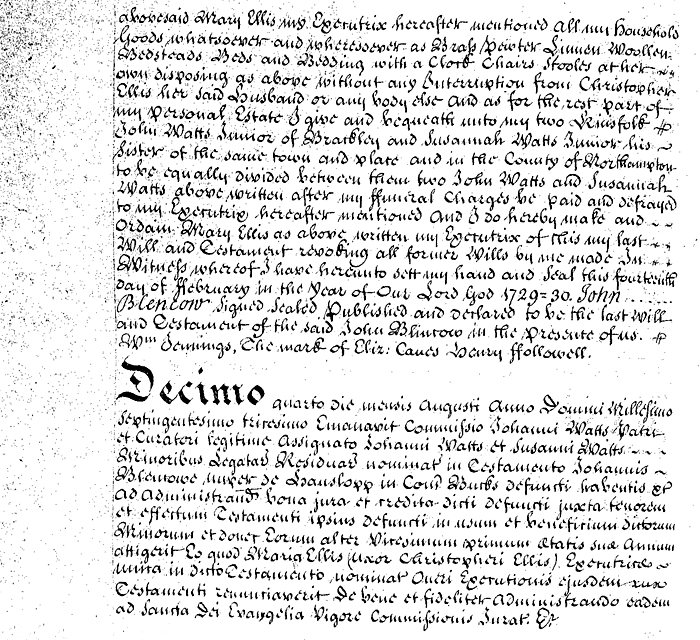 abovesaid Mary Ellis my Executrix hereafter mentioned All my Household
Goods whatsoever and wheresoever as Brass Pewter Linnen Woollen
Bedsteads Beds and Bedding with a Clock Chairs Stooles at her
own disposing as above without any Interruption from Christopher
Ellis her said Husband or any body else And as for the rest part of
my personal Estate I give and bequeath unto my two Kinsfolk
John Watts Junior of Brackley and Susannah Watts Junior his
Sister of the same town and place and in the County of Northampton
to be equally divided between them two John Watts and Susannah
Watts above written after my ffuneral Charges be paid and defrayed
to my Executrix hereafter mentioned And I do hereby make and
Ordain Mary Ellis as above written my Executrix of this my last
Will and Testament revoking all former Wills by me made In
Witness whereof I have hereunto sett my hand and Seal this fourteenth
day of ffebruary in the Year of Our Lord God 1729=30. John
Blencow Signed Sealed Published and declared to be the last Will
and Testament of the said John Blincow in the presence of us.
Wm Jennings, The mark of Eliz: Caves Henry ffollowell.
Decimo quarto die mensis Augusti Anno Domini Millesimo
Septingentesimo tricesimo Emanavit Commissio Johanni Watts Patri
et Curatori legitime Assignato Johanni Watts et Susanni Watts
Minoribus Legatar Residuar nominat in Testamento Johannis
Blencowe nuper de Hanslopp in Com Bucks defuncti habentis &c
Ad Administrand bona jura et credita dicti defuncti juxta tenorem
et effectum Testamenti ipsius defuncti in usum et beneficium dictorum
Minorum et donec Eorum alter Vicesimum primum Ætatis suæ Annum
attigerit Eo quod Maria Ellis (Uxor Christopheri Ellis) Executrice
unica in dicto Testamento nominat Oneri Executionis ejusdem
Testamenti renunciaverit De bene et fideliter Administrando eadem
ad Sancta Dei Evangelia Vigore Commissionis Jurat. Er